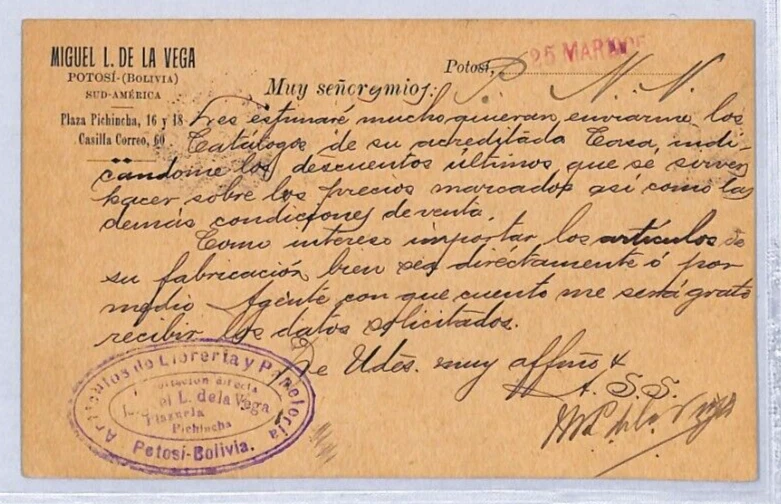 MIGUEL L. DE LA VEGA
POTOSÍ-(BOLIVIA)
SUD-AMÉRICA
Plaza Pichincha, 16 y 18
Casilla Correo, 60
Potosí, 25 MAR
P. N. N.
Muy señores mios:
Les estimaré mucho quieran enviarme los
Catálogos de su acreditada Casa, indi-
cándome los descuentos últimos que se sirven
hacer sobre los precios marcados así como las
demás condiciones de venta.
Como intereso importar los artículos de
su fabricación, bien sea directamente ó por
medio Agente con que cuento me será grato
recibir los datos solicitados.
De Udes. muy affmo &
A. S. S.
M L de la Vega
Artículos de Librería y Papelería
directa
L. de la Vega
Plazuela
Pichincha
Potosí-Bolivia.